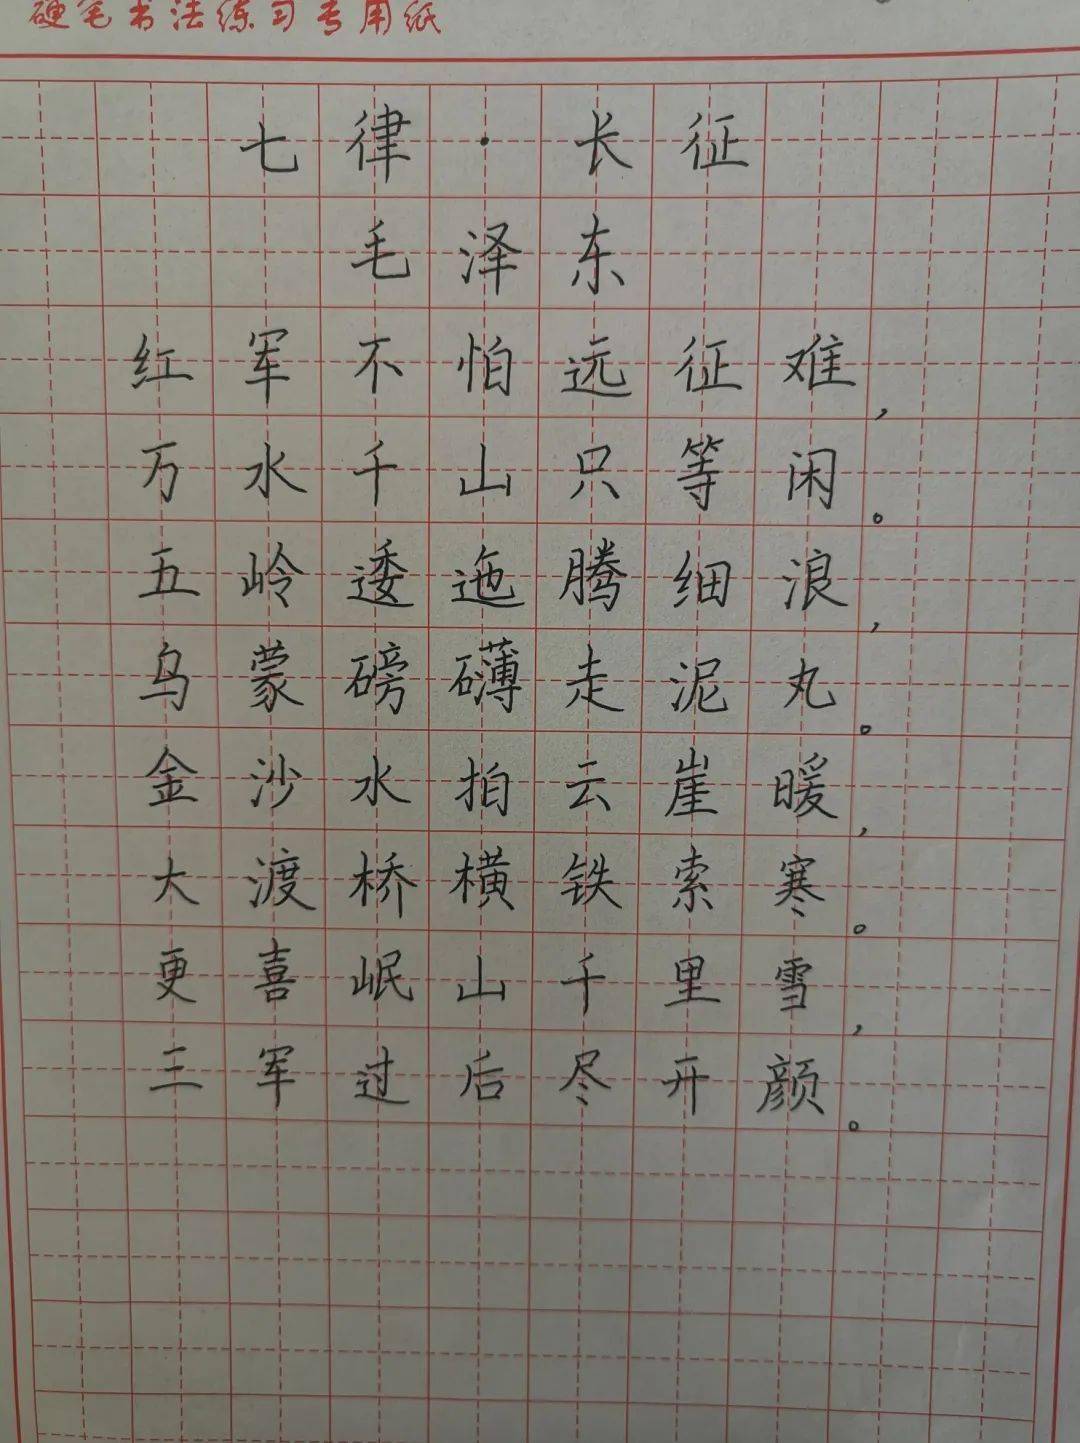 硬笔书法练习专用纸
七律·长征
毛泽东
红军不怕远征难，
万水千山只等闲。
五岭逶迤腾细浪，
乌蒙磅礴走泥丸。
金沙水拍云崖暖，
大渡桥横铁索寒。
更喜岷山千里雪，
三军过后尽开颜。